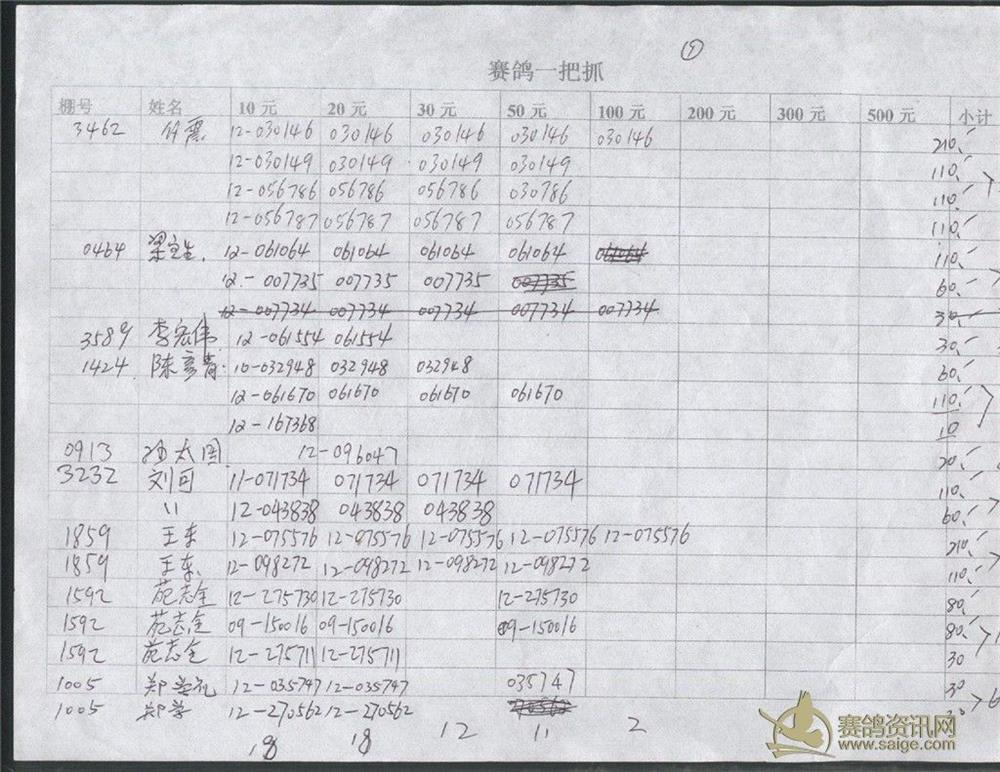 赛鸽一把抓
棚号 姓名 10元 20元 30元 50元 100元 200元 300元 500元 小计
3462 12-030146 030146 030146 030146 030146 210.
12-030149 030149 030149 030149 110.
12-056786 056786 056786 030786 110.
12-056787 056787 056787 056787 110.
0464 梁宝生. 12-061064 061064 061064 061064 061064 110.
12-007735 007735 007735 007735 60.
12-007734 007734 007734 007734 007734
3589 李宏伟 12-061554 061554 30.
1424 陈彦青 10-032948 032948 032948 60.
12-061670 061670 061670 061670 110.
12-167368 10
0913 孙太国 12-096047 20.
3232 刘可 11-071734 071734 071734 071734 110.
〃 12-043838 043838 043838 60.
1859 王东 12-075576 12-075576 12-075576 12-075576 12-075576 210.
1859 王东 12-098272 12-098272 12-098272 12-098272 110.
1592 苑志全 12-275730 12-275730 12-275730 80.
1592 苑志全 09-150016 09-150016 09-150016 80.
1592 苑志全 12-275711 12-275711 30
1005 郑学礼 12-035747 12-035747 035747 30
1005 郑学 12-270562 12-270562 270562
18 18 12 11 2
赛鸽资讯网
www.saige.com